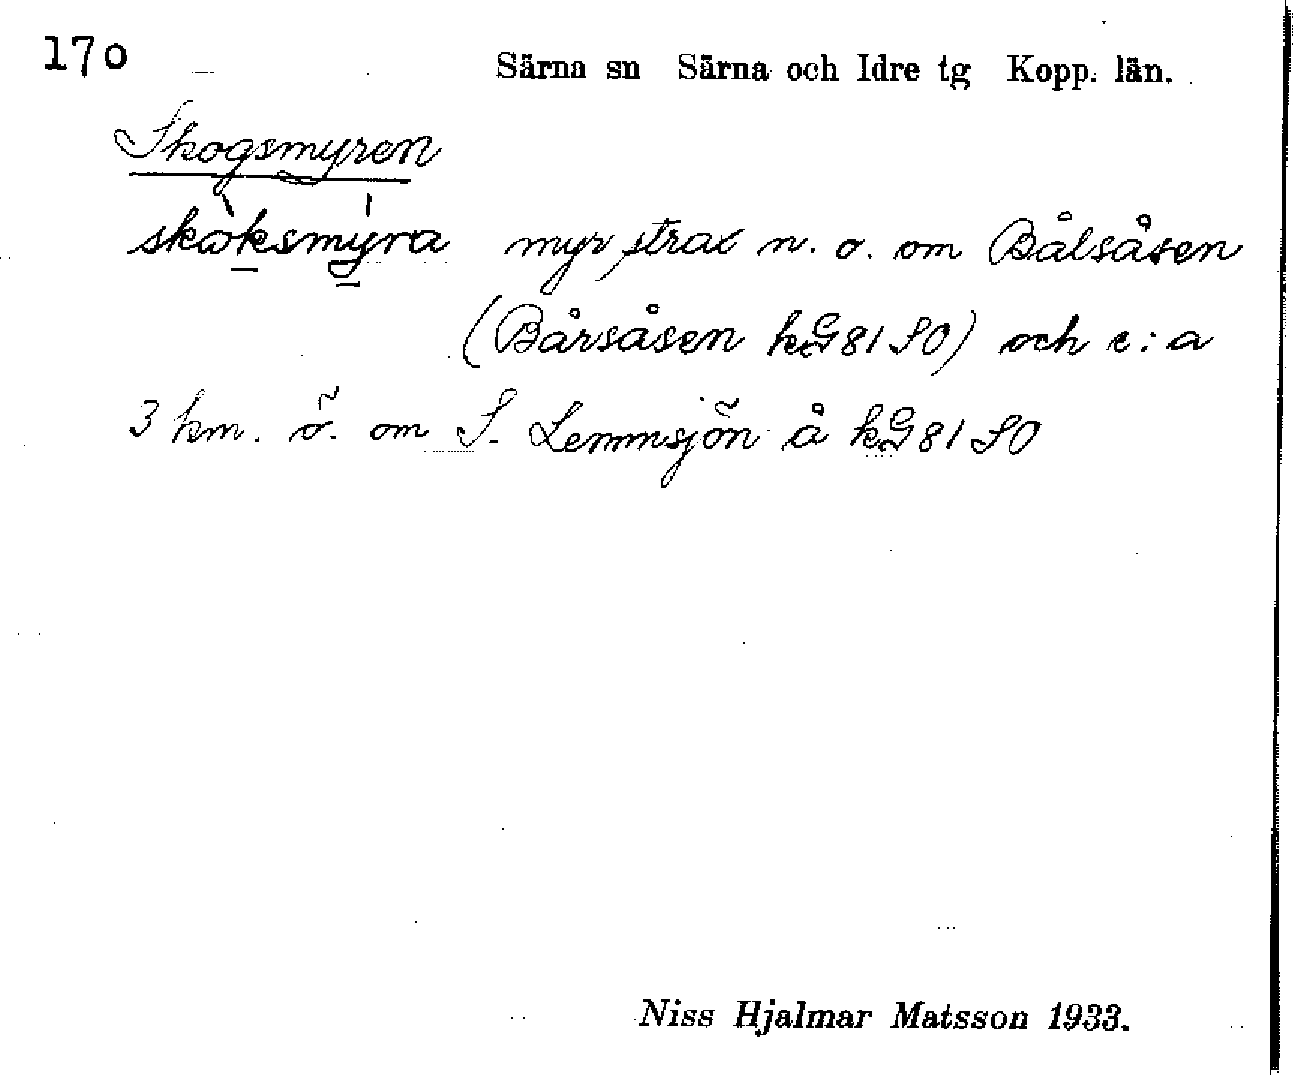 170 Särna sn Särna och Idre tg Kopp. län.
Skogsmyren
skòksmýra myr strax n. o. om Bålsåsen
(Bårsåsen kG 81 SO) och c:a
3 km. ö. om S. Lemmsjön å kG 81 SO
Niss Hjalmar Matsson 1933.